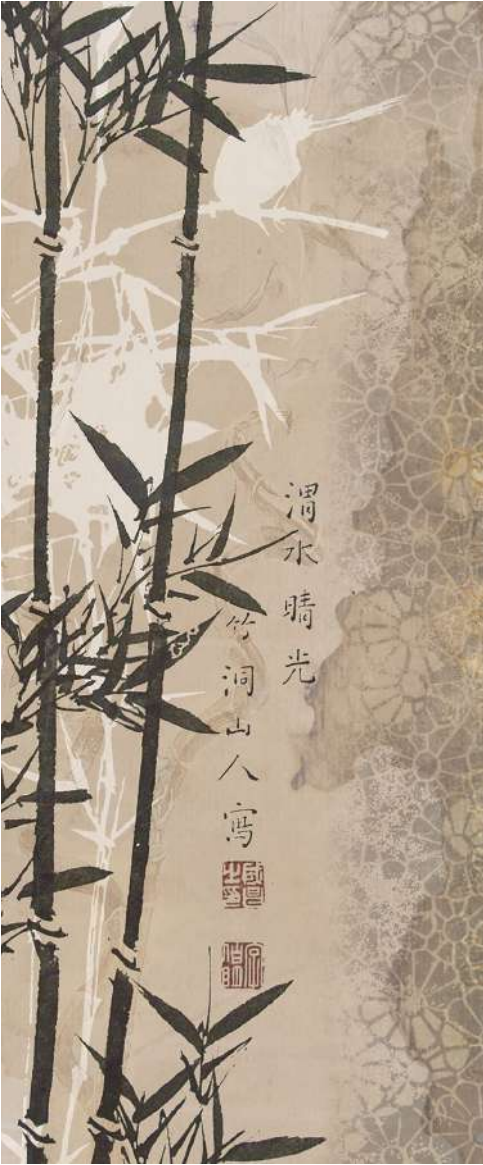 渭水晴光
竹洞山人寫